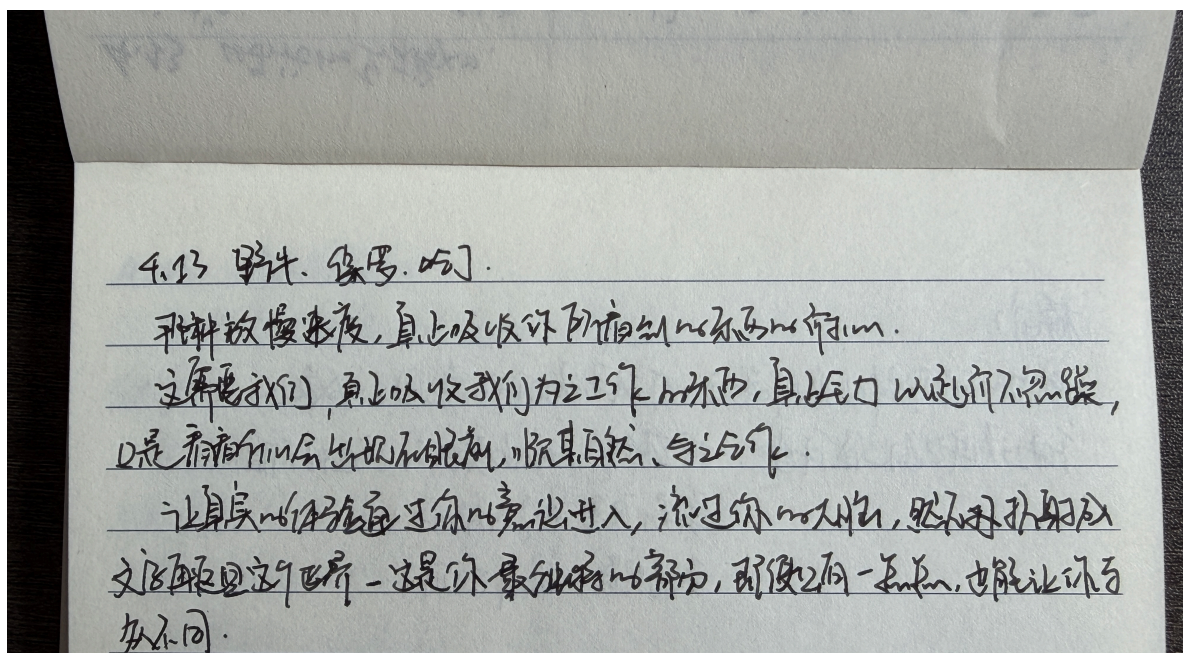 4.13 野牛、保罗、
那种放慢速度,真正吸收你所看到的东西的
这需要我们,真正吸收我们为之工作的东西,真正 而不忽略,
只是看看 会出现在眼前,顺其自然、与之合作.
让真实的体验通过你的意识进入,流过你的大脑,然后再投射成
文字再返回这个世界-这是你最 的部分,即便只有一点点,也能让你与
众不同.